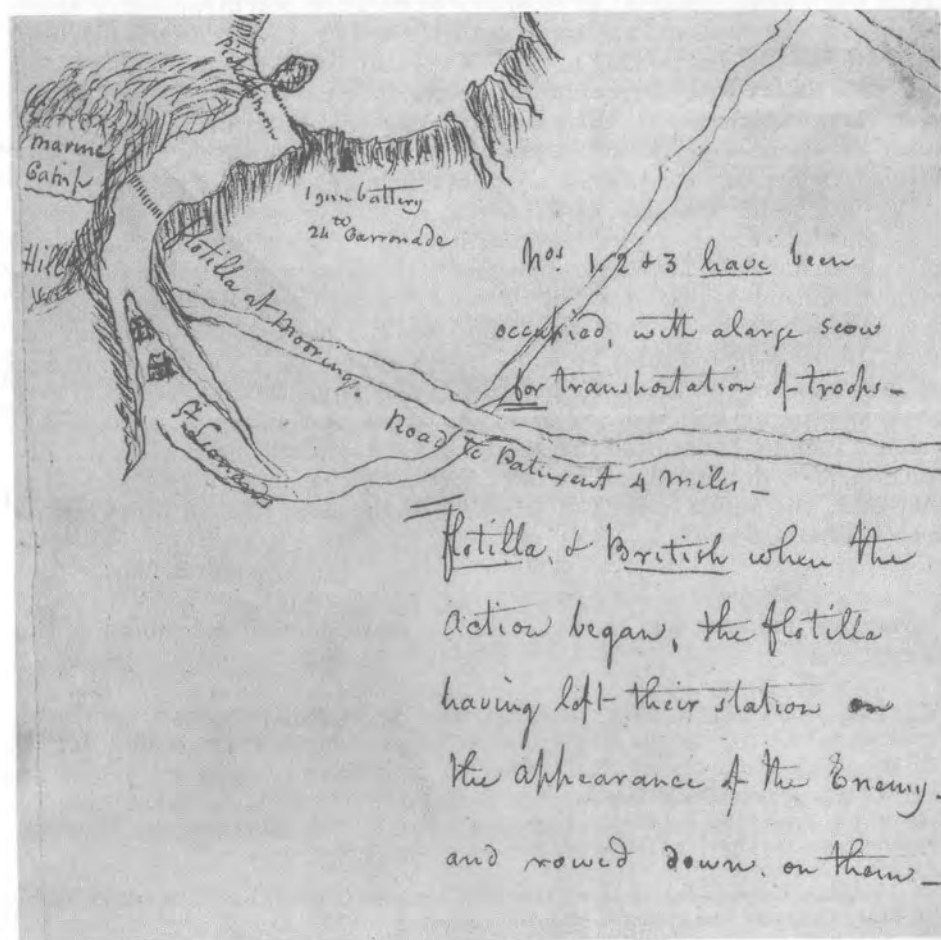 marine
Camp
Hill
1 gun battery
24 to Carronade
flotilla at Moorings.
St. Leonards
Road to Patuxent 4 miles –
Nos. 1. 2 & 3 have been
occupied, with a large scow
for transportation of troops –
flotilla, & British when the
action began, the flotilla
having left their station on
the appearance of the Enemy.
and rowed down. on them –